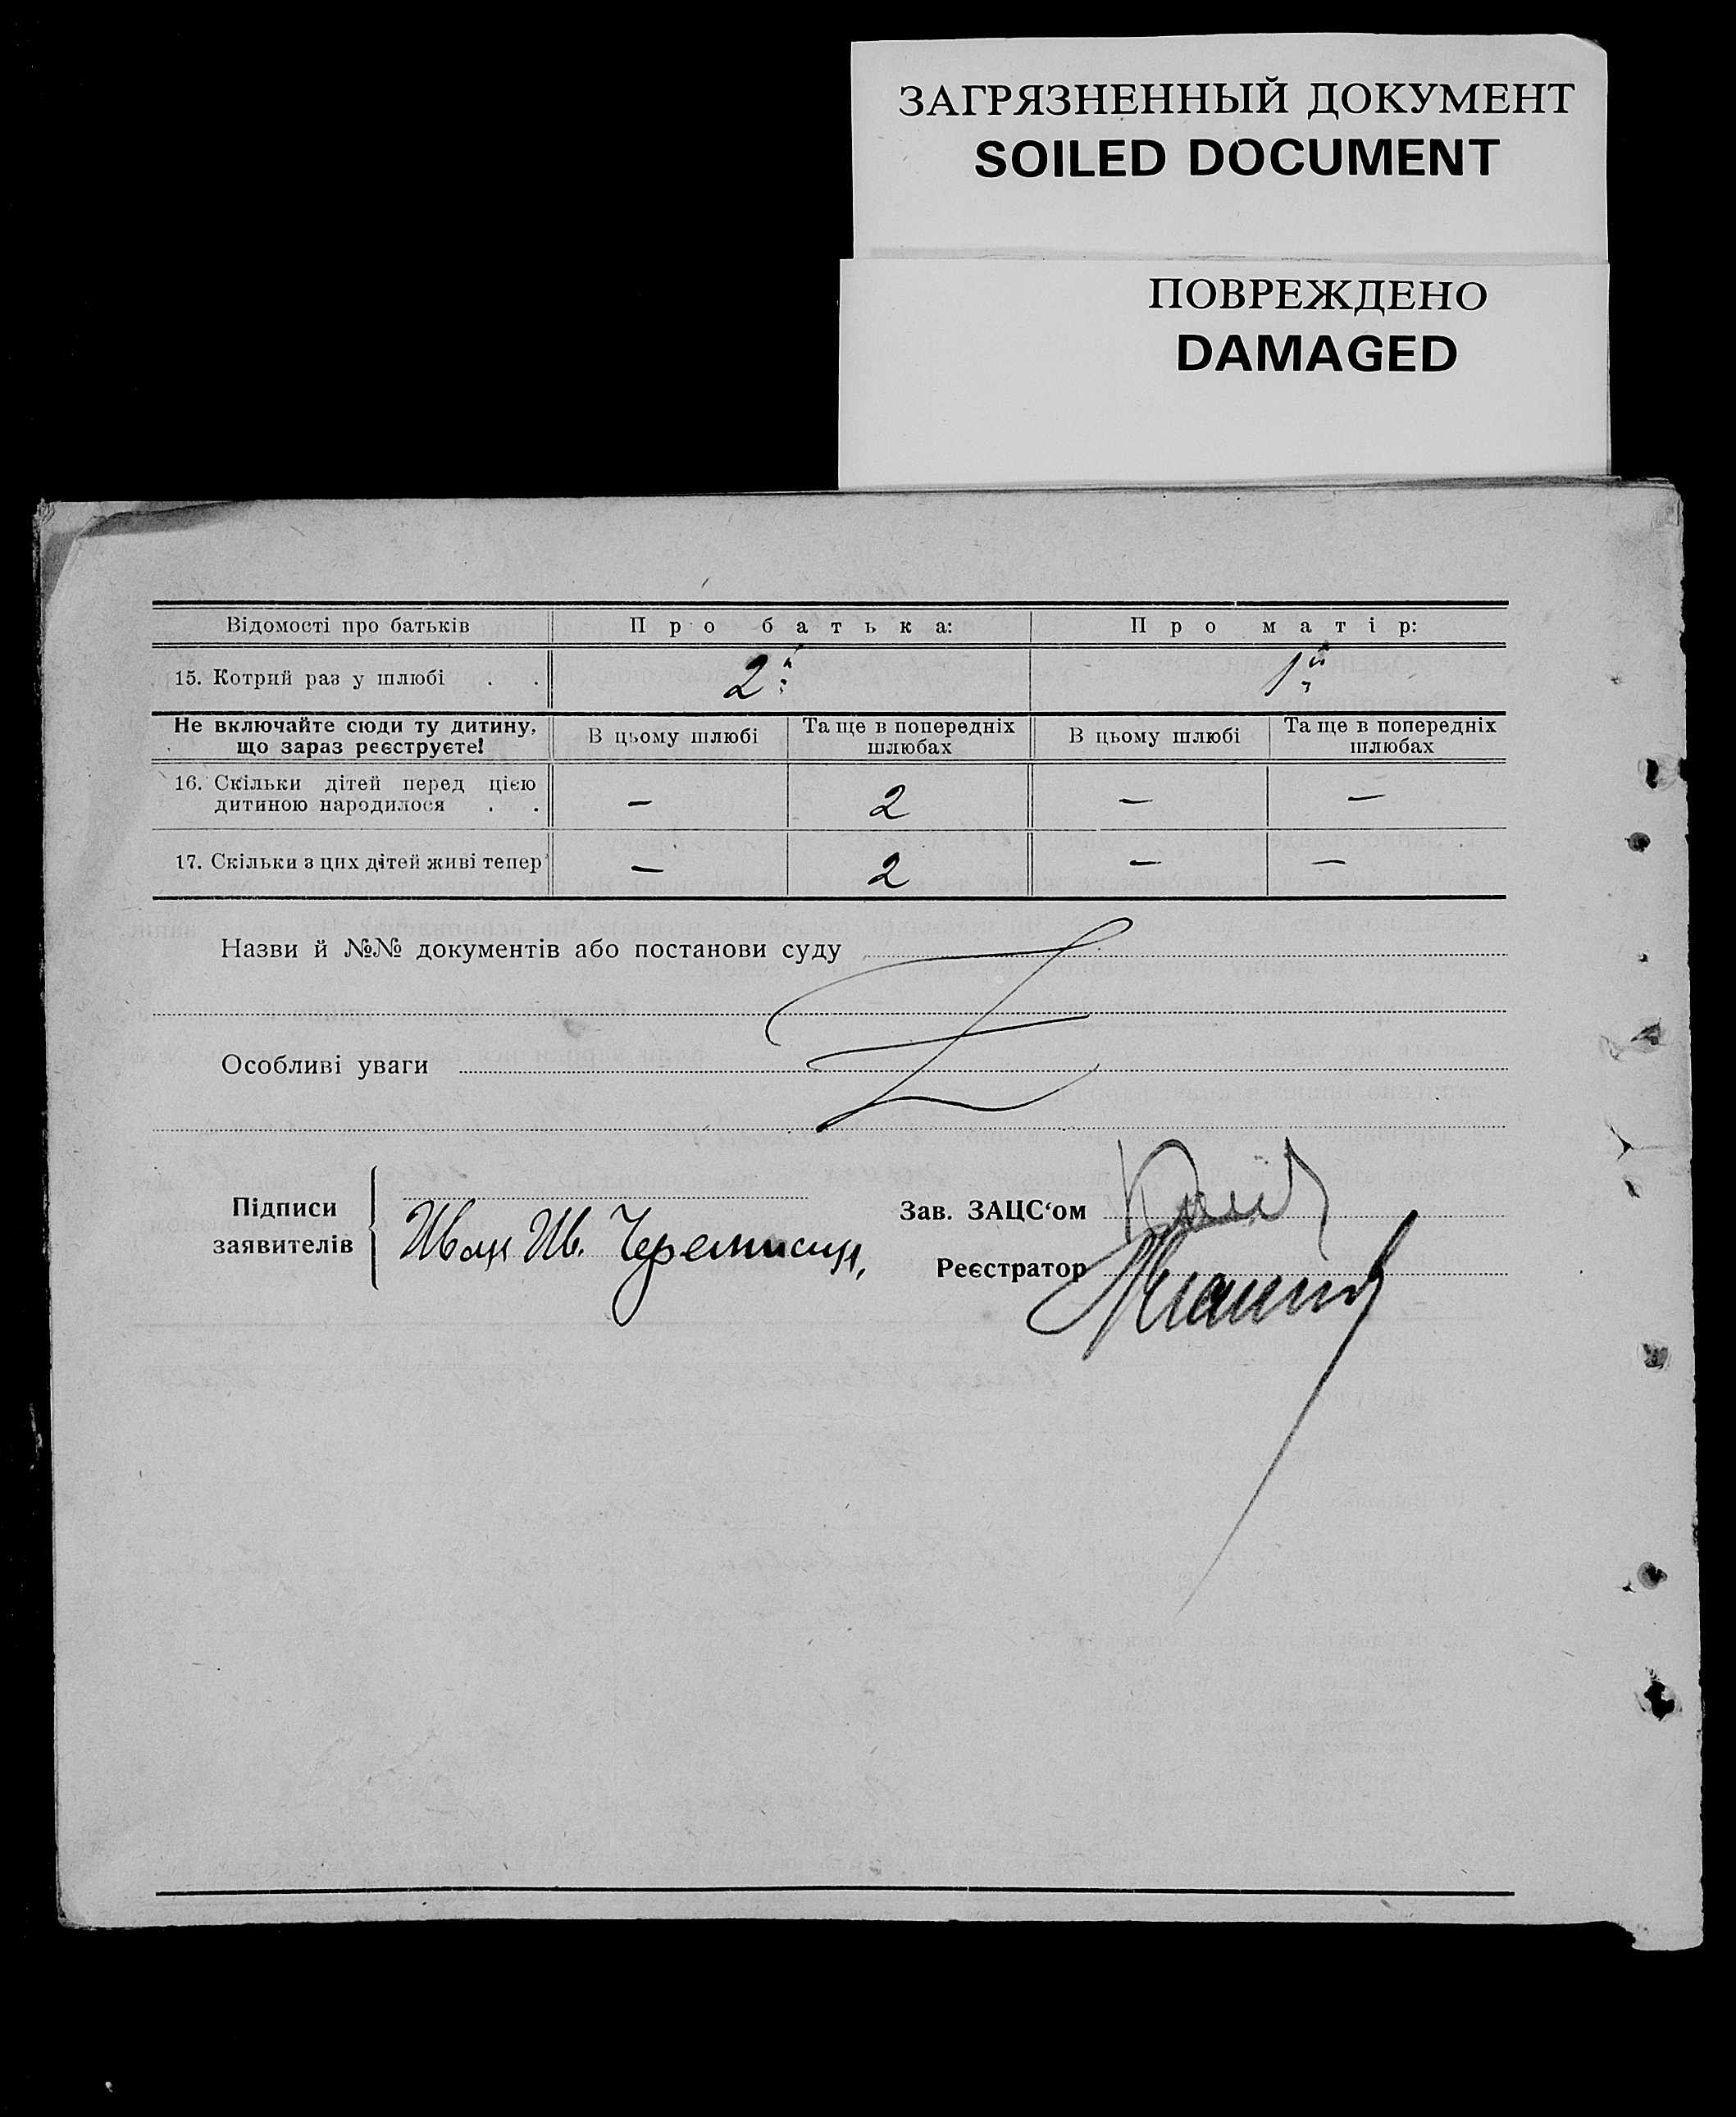 ЗАГРЯЗНЕННЫЙ ДОКУМЕНТ
SOILED DOCUMENT
ПОВРЕЖДЕНО
DAMAGED
Відомості про батьків Про батька: Про матір:
15. Котрий раз у шлюбі . . 2й 1й
Не включайте сюди ту дитину, що зараз реєструєте! В цьому шлюбі Та ще в попередніх шлюбах В цьому шлюбі Та ще в попередніх шлюбах
16. Скільки дітей перед цією
дитиною народилося . . — 2 — —
17. Скільки з цих дітей живі тепер — 2 — —
Назви й №№ документів або постанови суду
Особливі уваги
Підписи
заявителів
Иван Ив. Черемисин,
Зав. ЗАЦС‘ом
Реєстратор